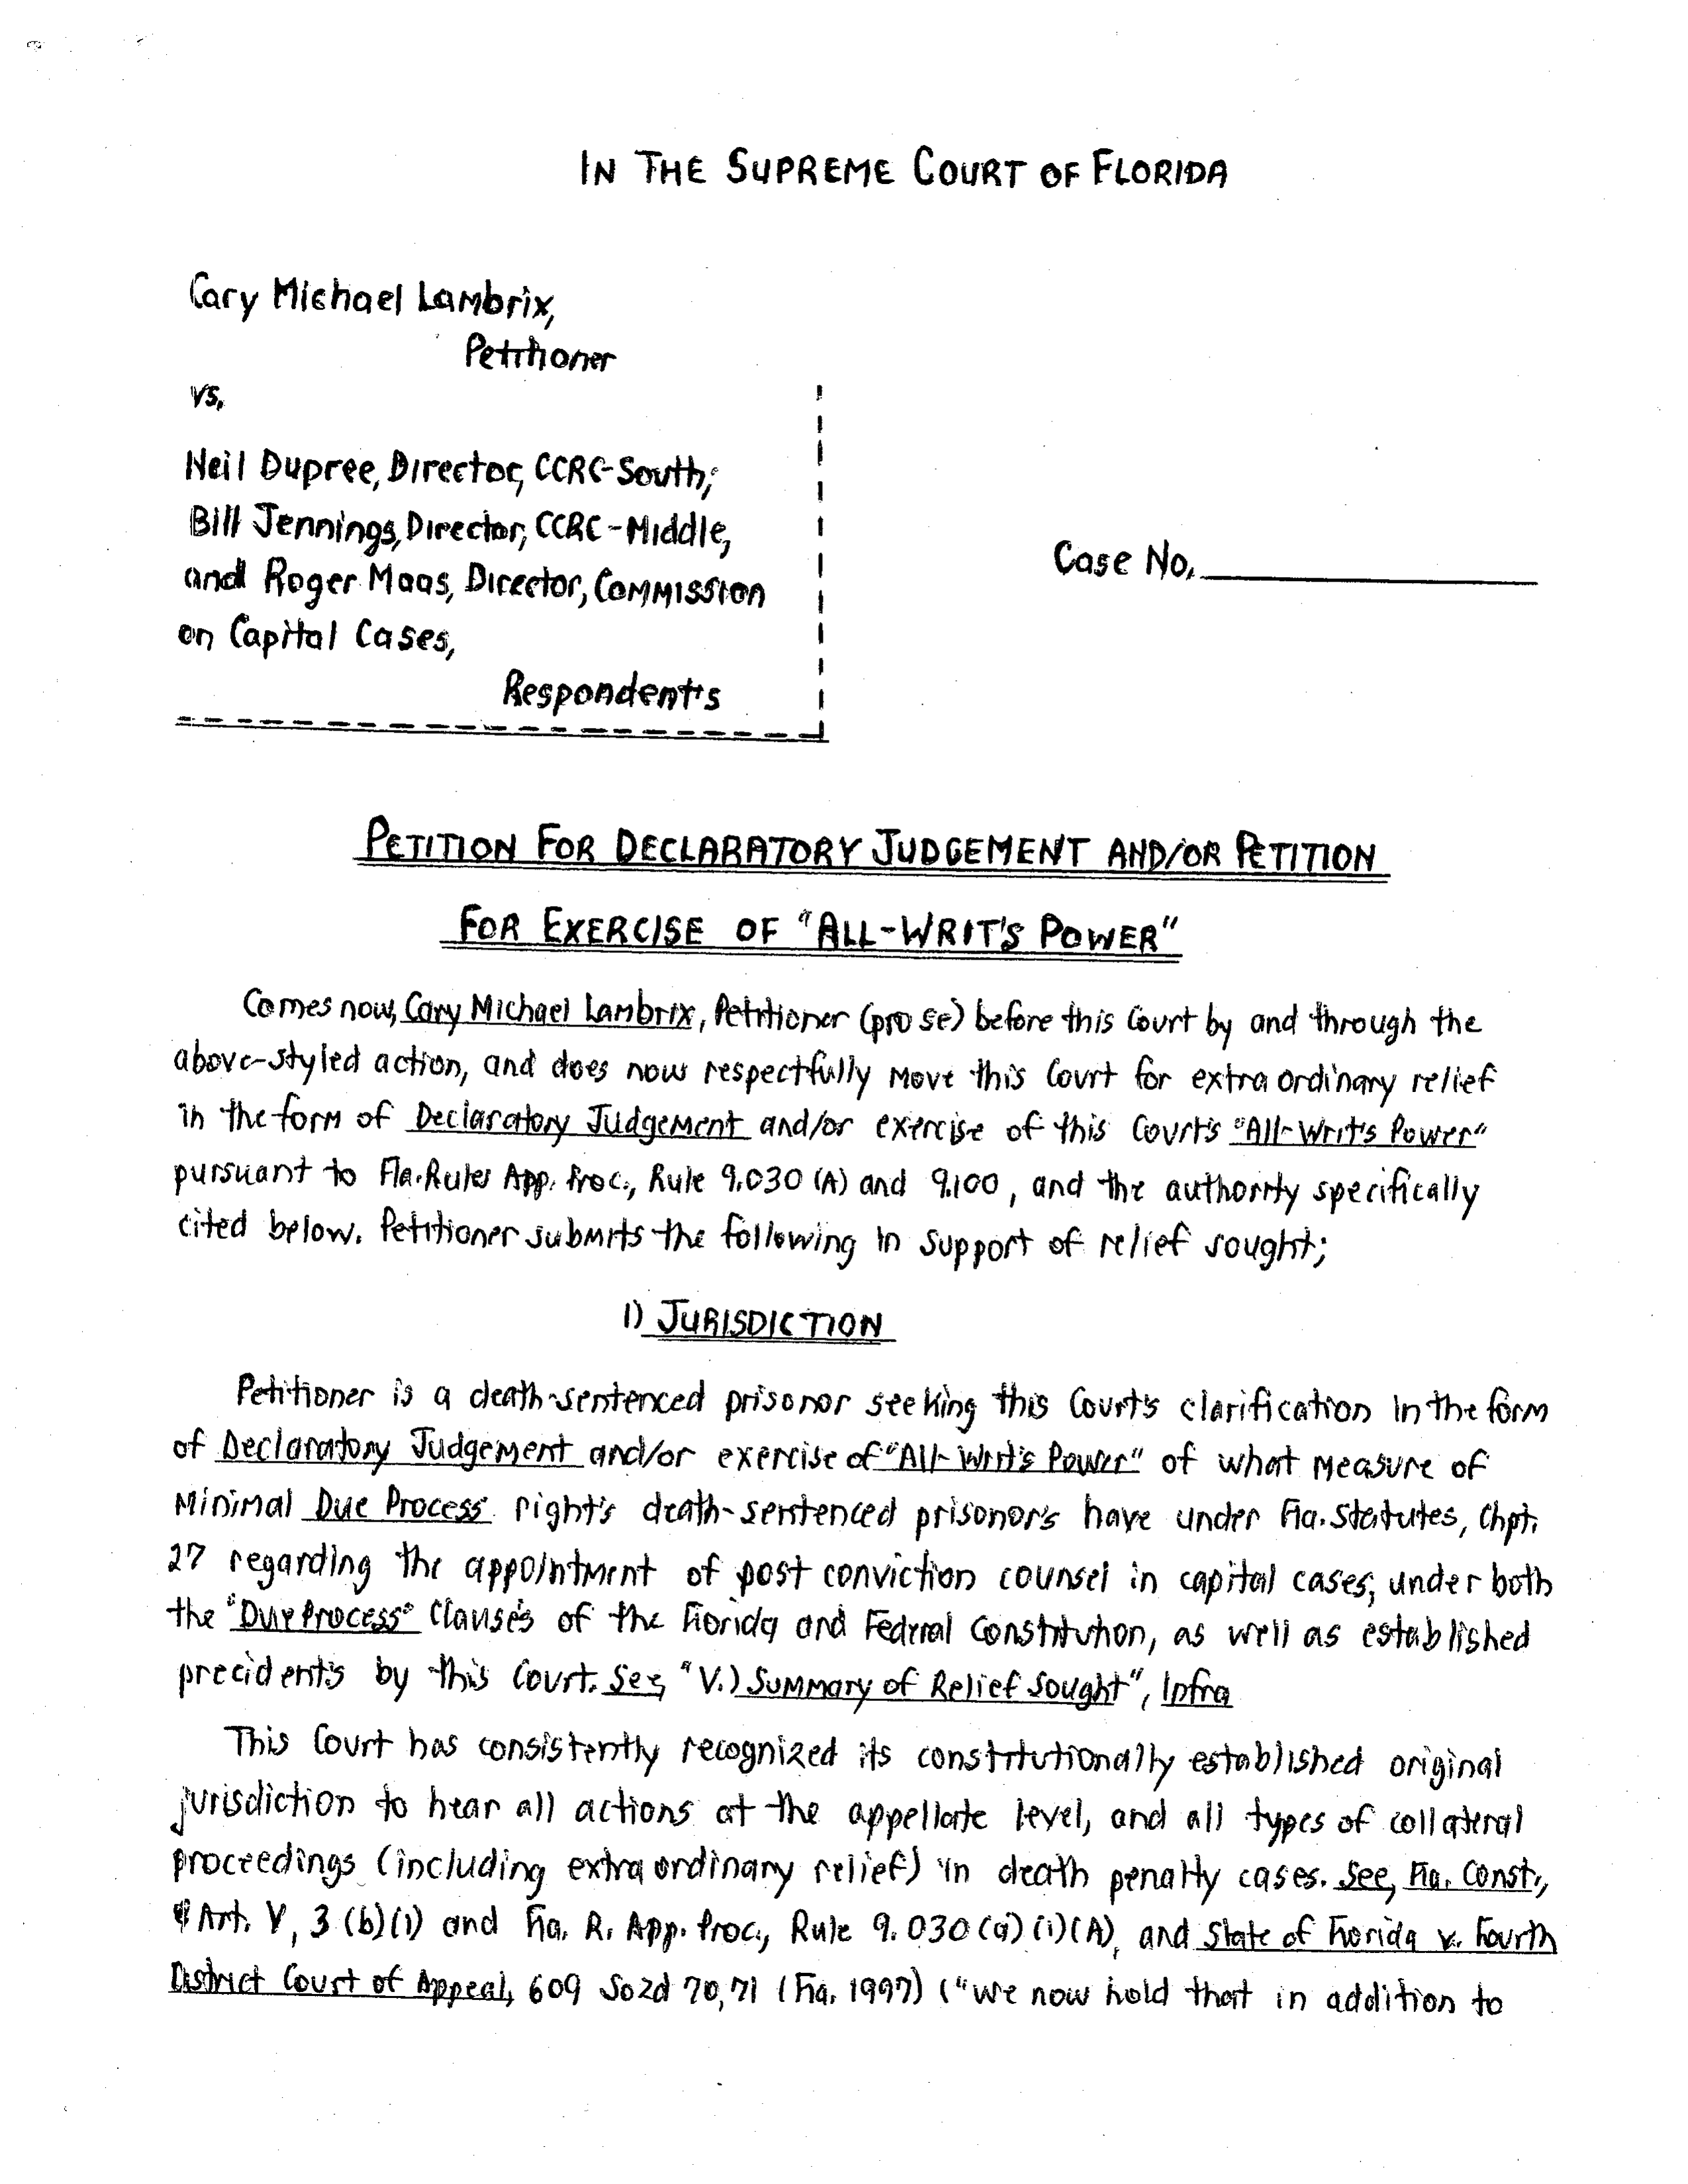 IN THE SUPREME COURT OF FLORIDA
Cary Michael Lambrix,
Petitioner
vs.
Neil Dupree, Director, CCRC-South;
Bill Jennings, Director, CCRC-Middle,
and Roger Maas, Director, Commission
on Capital Cases,
Respondent's
Case No. ____________
PETITION FOR DECLARATORY JUDGEMENT AND/OR PETITION
FOR EXERCISE OF "ALL-WRIT'S POWER"
Comes now, Cary Michael Lambrix, Petitioner (pro se) before this Court by and through the
above-styled action, and does now respectfully move this Court for extra ordinary relief
in the form of Declaratory Judgement and/or exercise of this Court's "All-Writ's Power"
pursuant to Fla. Rules App. Proc., Rule 9.030 (A) and 9.100, and the authority specifically
cited below. Petitioner submits the following in support of relief sought;
1) JURISDICTION
Petitioner is a death-sentenced prisonor seeking this Court's clarification in the form
of Declaratory Judgement and/or exercise of "All-Writ's Power" of what measure of
Minimal Due Process right's death-sentenced prisonor's have under Fla. Statutes, Chpt.
27 regarding the appointment of post conviction counsel in capital cases, under both
the "Due Process" Clause's of the Florida and Federal Constitution, as well as established
precident's by this Court. See, "V.) Summary of Relief Sought", Infra
This Court has consistently recognized its constitutionally established original
jurisdiction to hear all actions at the appellate level, and all types of collateral
proceedings (including extra ordinary relief) in death penalty cases. See, Fla. Const.,
Art. V, 3 (b)(1) and Fla. R. App. Proc., Rule 9.030 (a) (1)(A), and State of Florida v. Fourth
District Court of Appeal, 609 So2d 70,71 (Fla. 1997) ("we now hold that in addition to